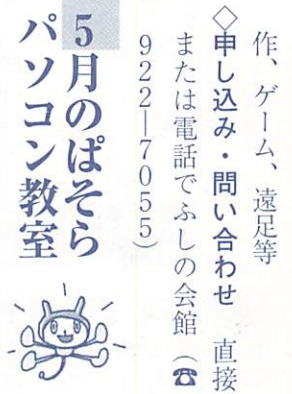 作、ゲーム、遠足等
◇申し込み・問い合わせ　直接
または電話でふしの会館（☎
922―7055）
5月のぱそら
パソコン教室